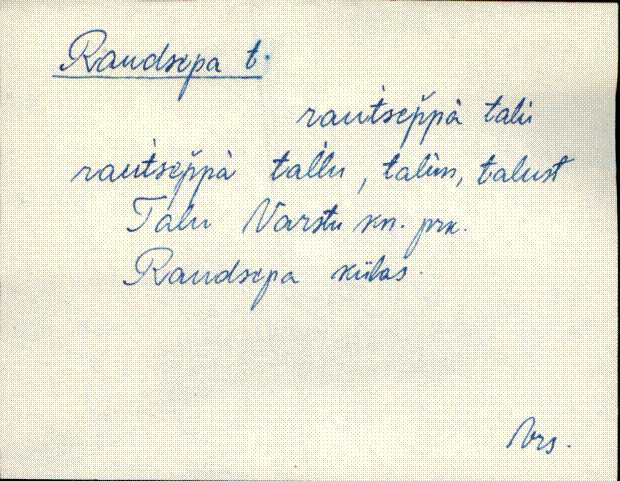 Raudsepa t.
rautseppà talu
rautseppà tallu, talun, talust
Talu Varstu kn. prk.
Raudsepa külas.
Vrs.